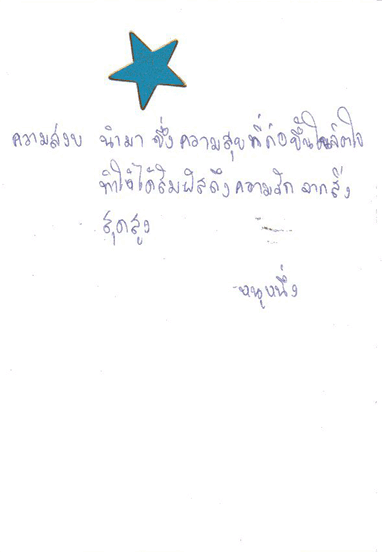 ความสงบ นำมา ซึ่ง ความสุข ที่ก่อขึ้นในจิตใจ
ทำให้ได้สัมผัสถึงความรัก จากสิ่ง
สูงสุด
หนูหนึ่ง